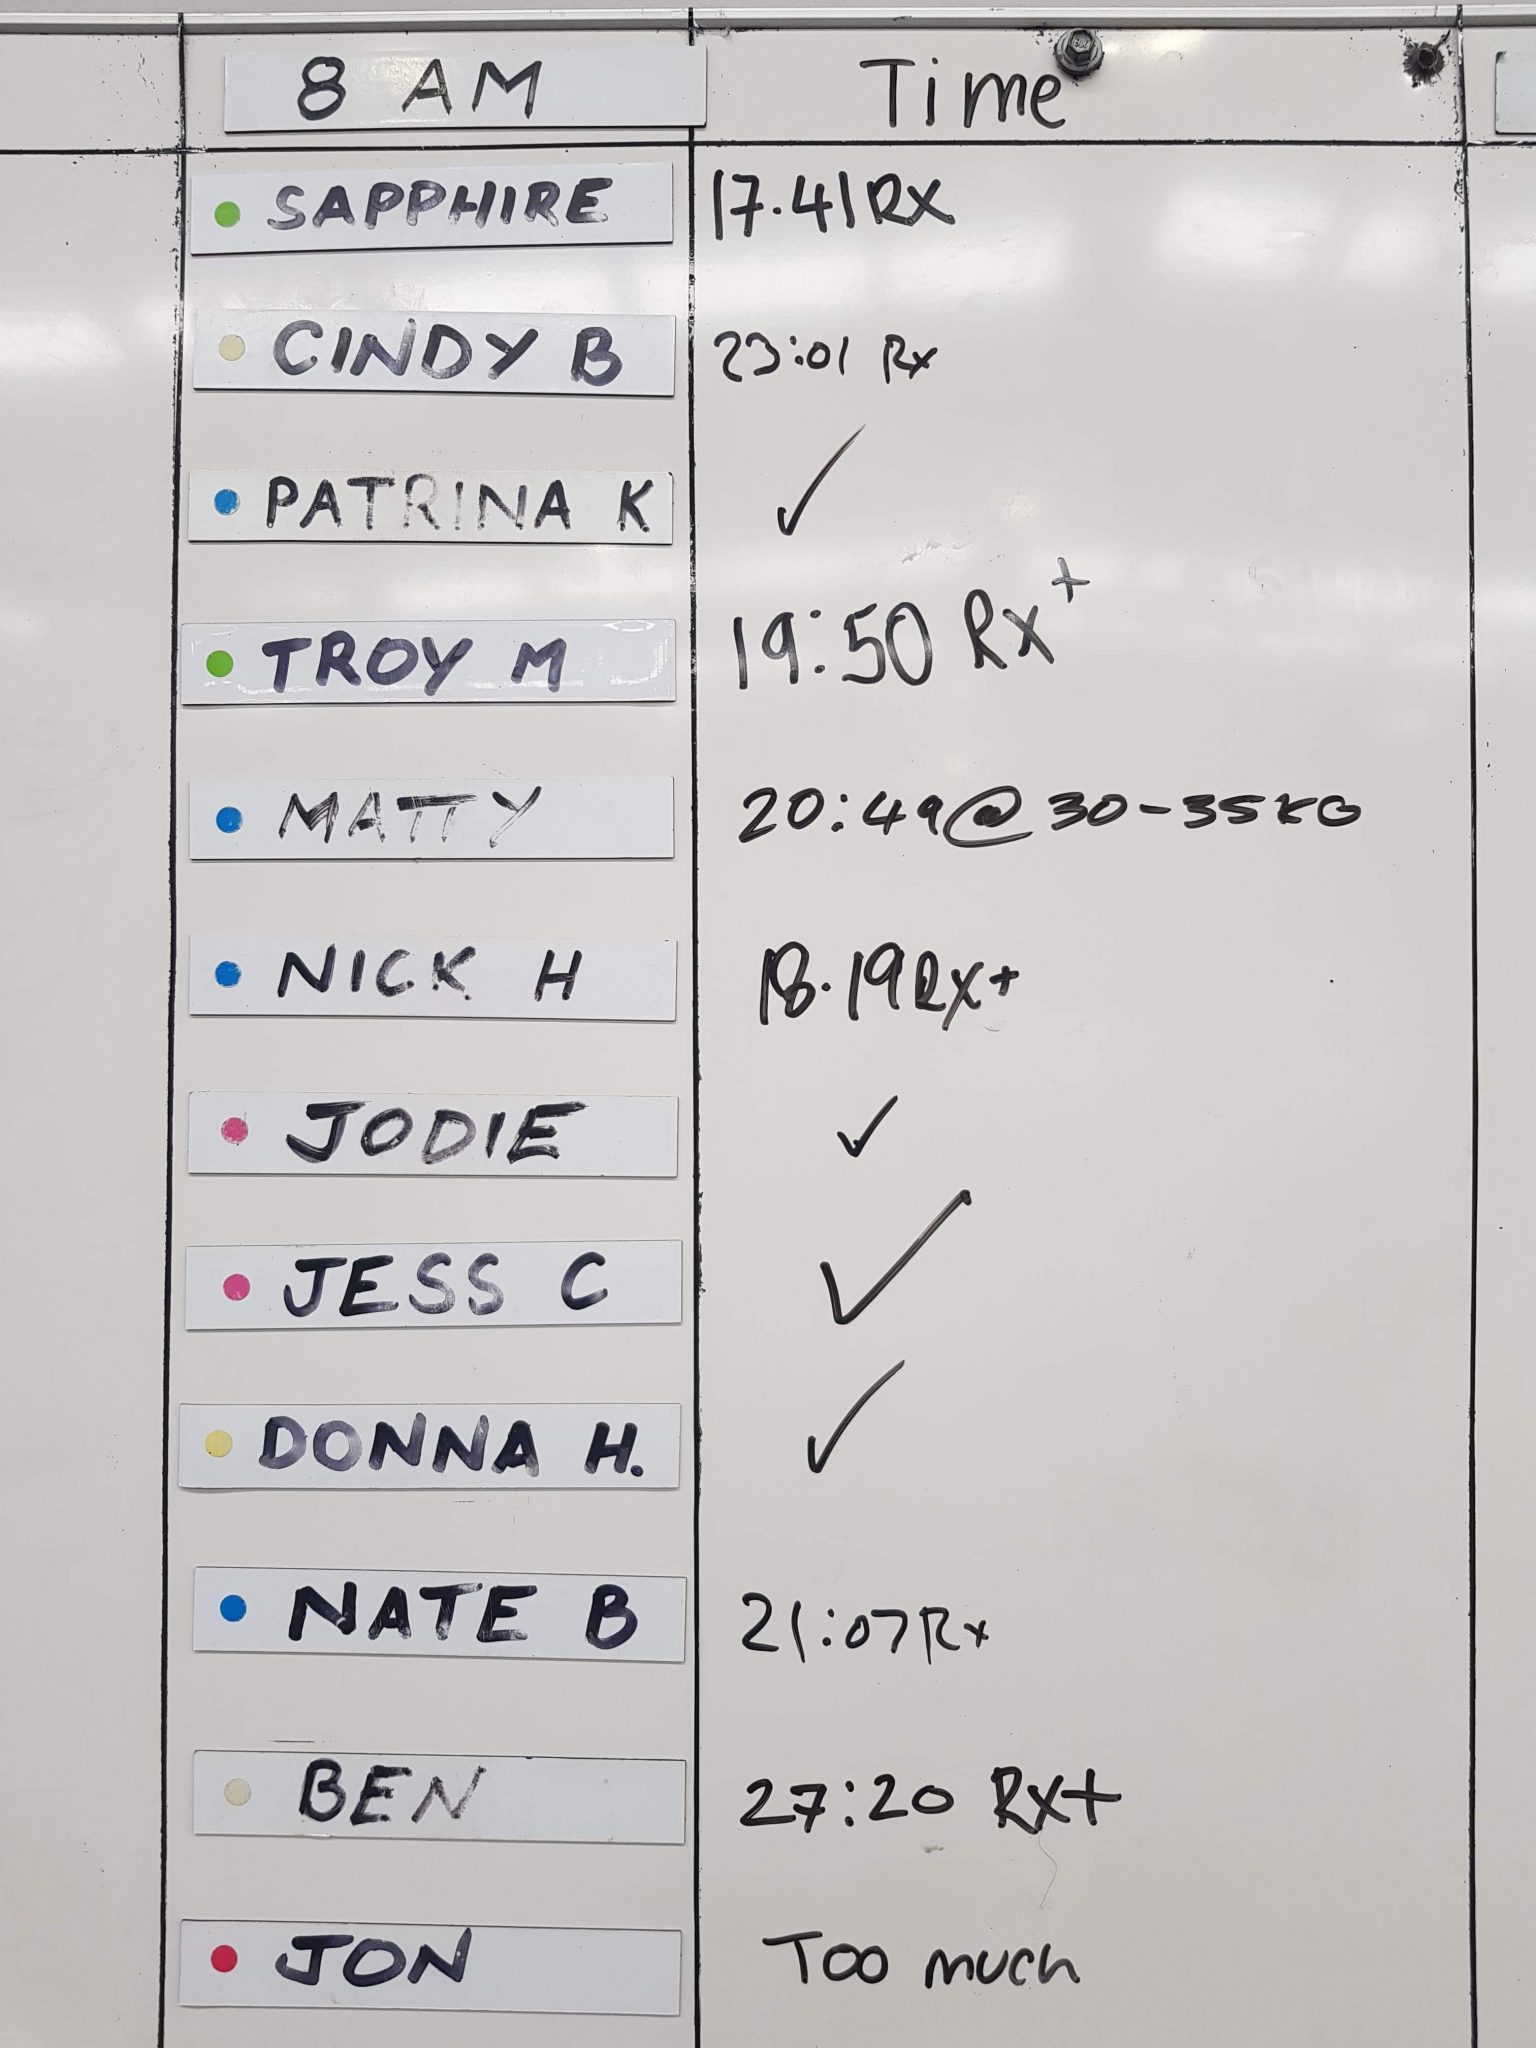 8 AM Time
SAPPHIRE 17.41 Rx
CINDY B 23:01 Rx
PATRINA K ✓
TROY M 19:50 Rx+
MATTY 20:49 @ 30-35KG
NICK H 18.19 Rx+
JODIE ✓
JESS C ✓
DONNA H. ✓
NATE B 21:07 Rx
BEN 27:20 Rx+
JON Too much